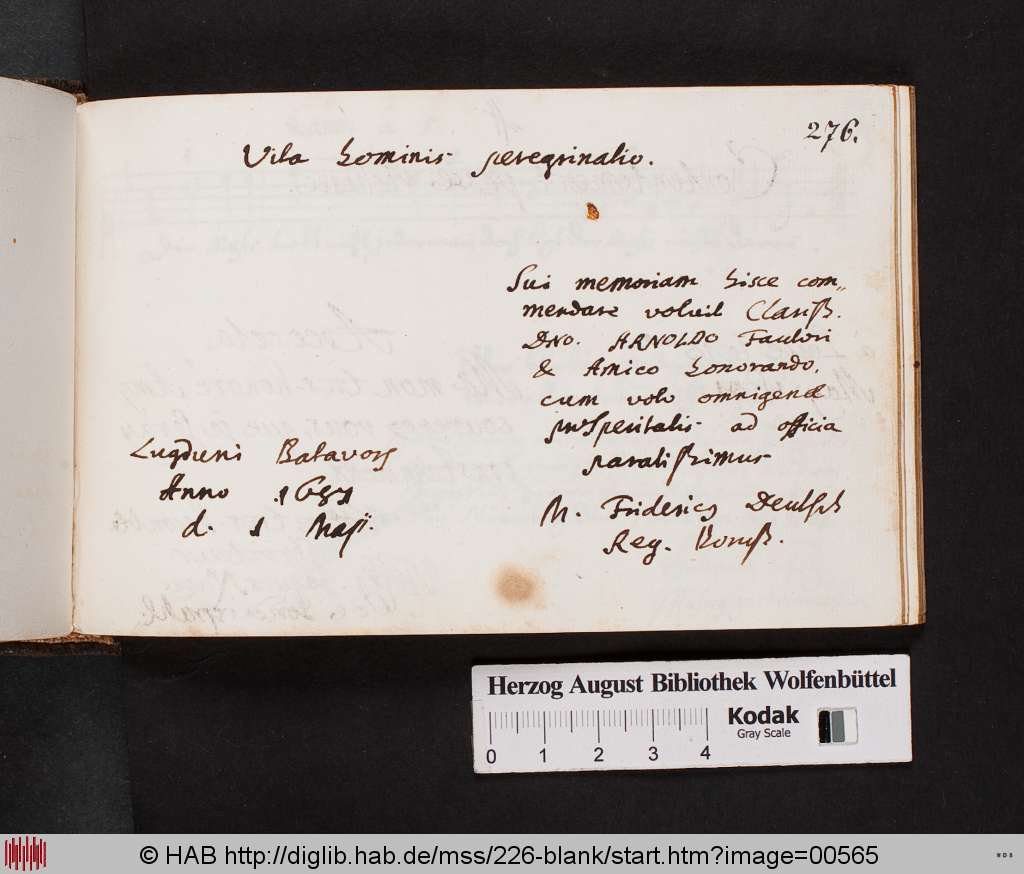 276.
Vita hominis peregrinatio.
Sui memoriam hisce com„
mendare voluit Clariß.
DNO. ARNOLDO Fautori
& Amico honorando,
cum voto omnigenæ
prosperitatis ad officia
paratißimus
M. Fridericg Deutsch
Reg. Boruß.
Lugduni Batavor
Anno 1681
d. 1 Maji.
Herzog August Bibliothek Wolfenbüttel
Kodak
Gray Scale
0 1 2 3 4
© HAB http://diglib.hab.de/mss/226-blank/start.htm?image=00565